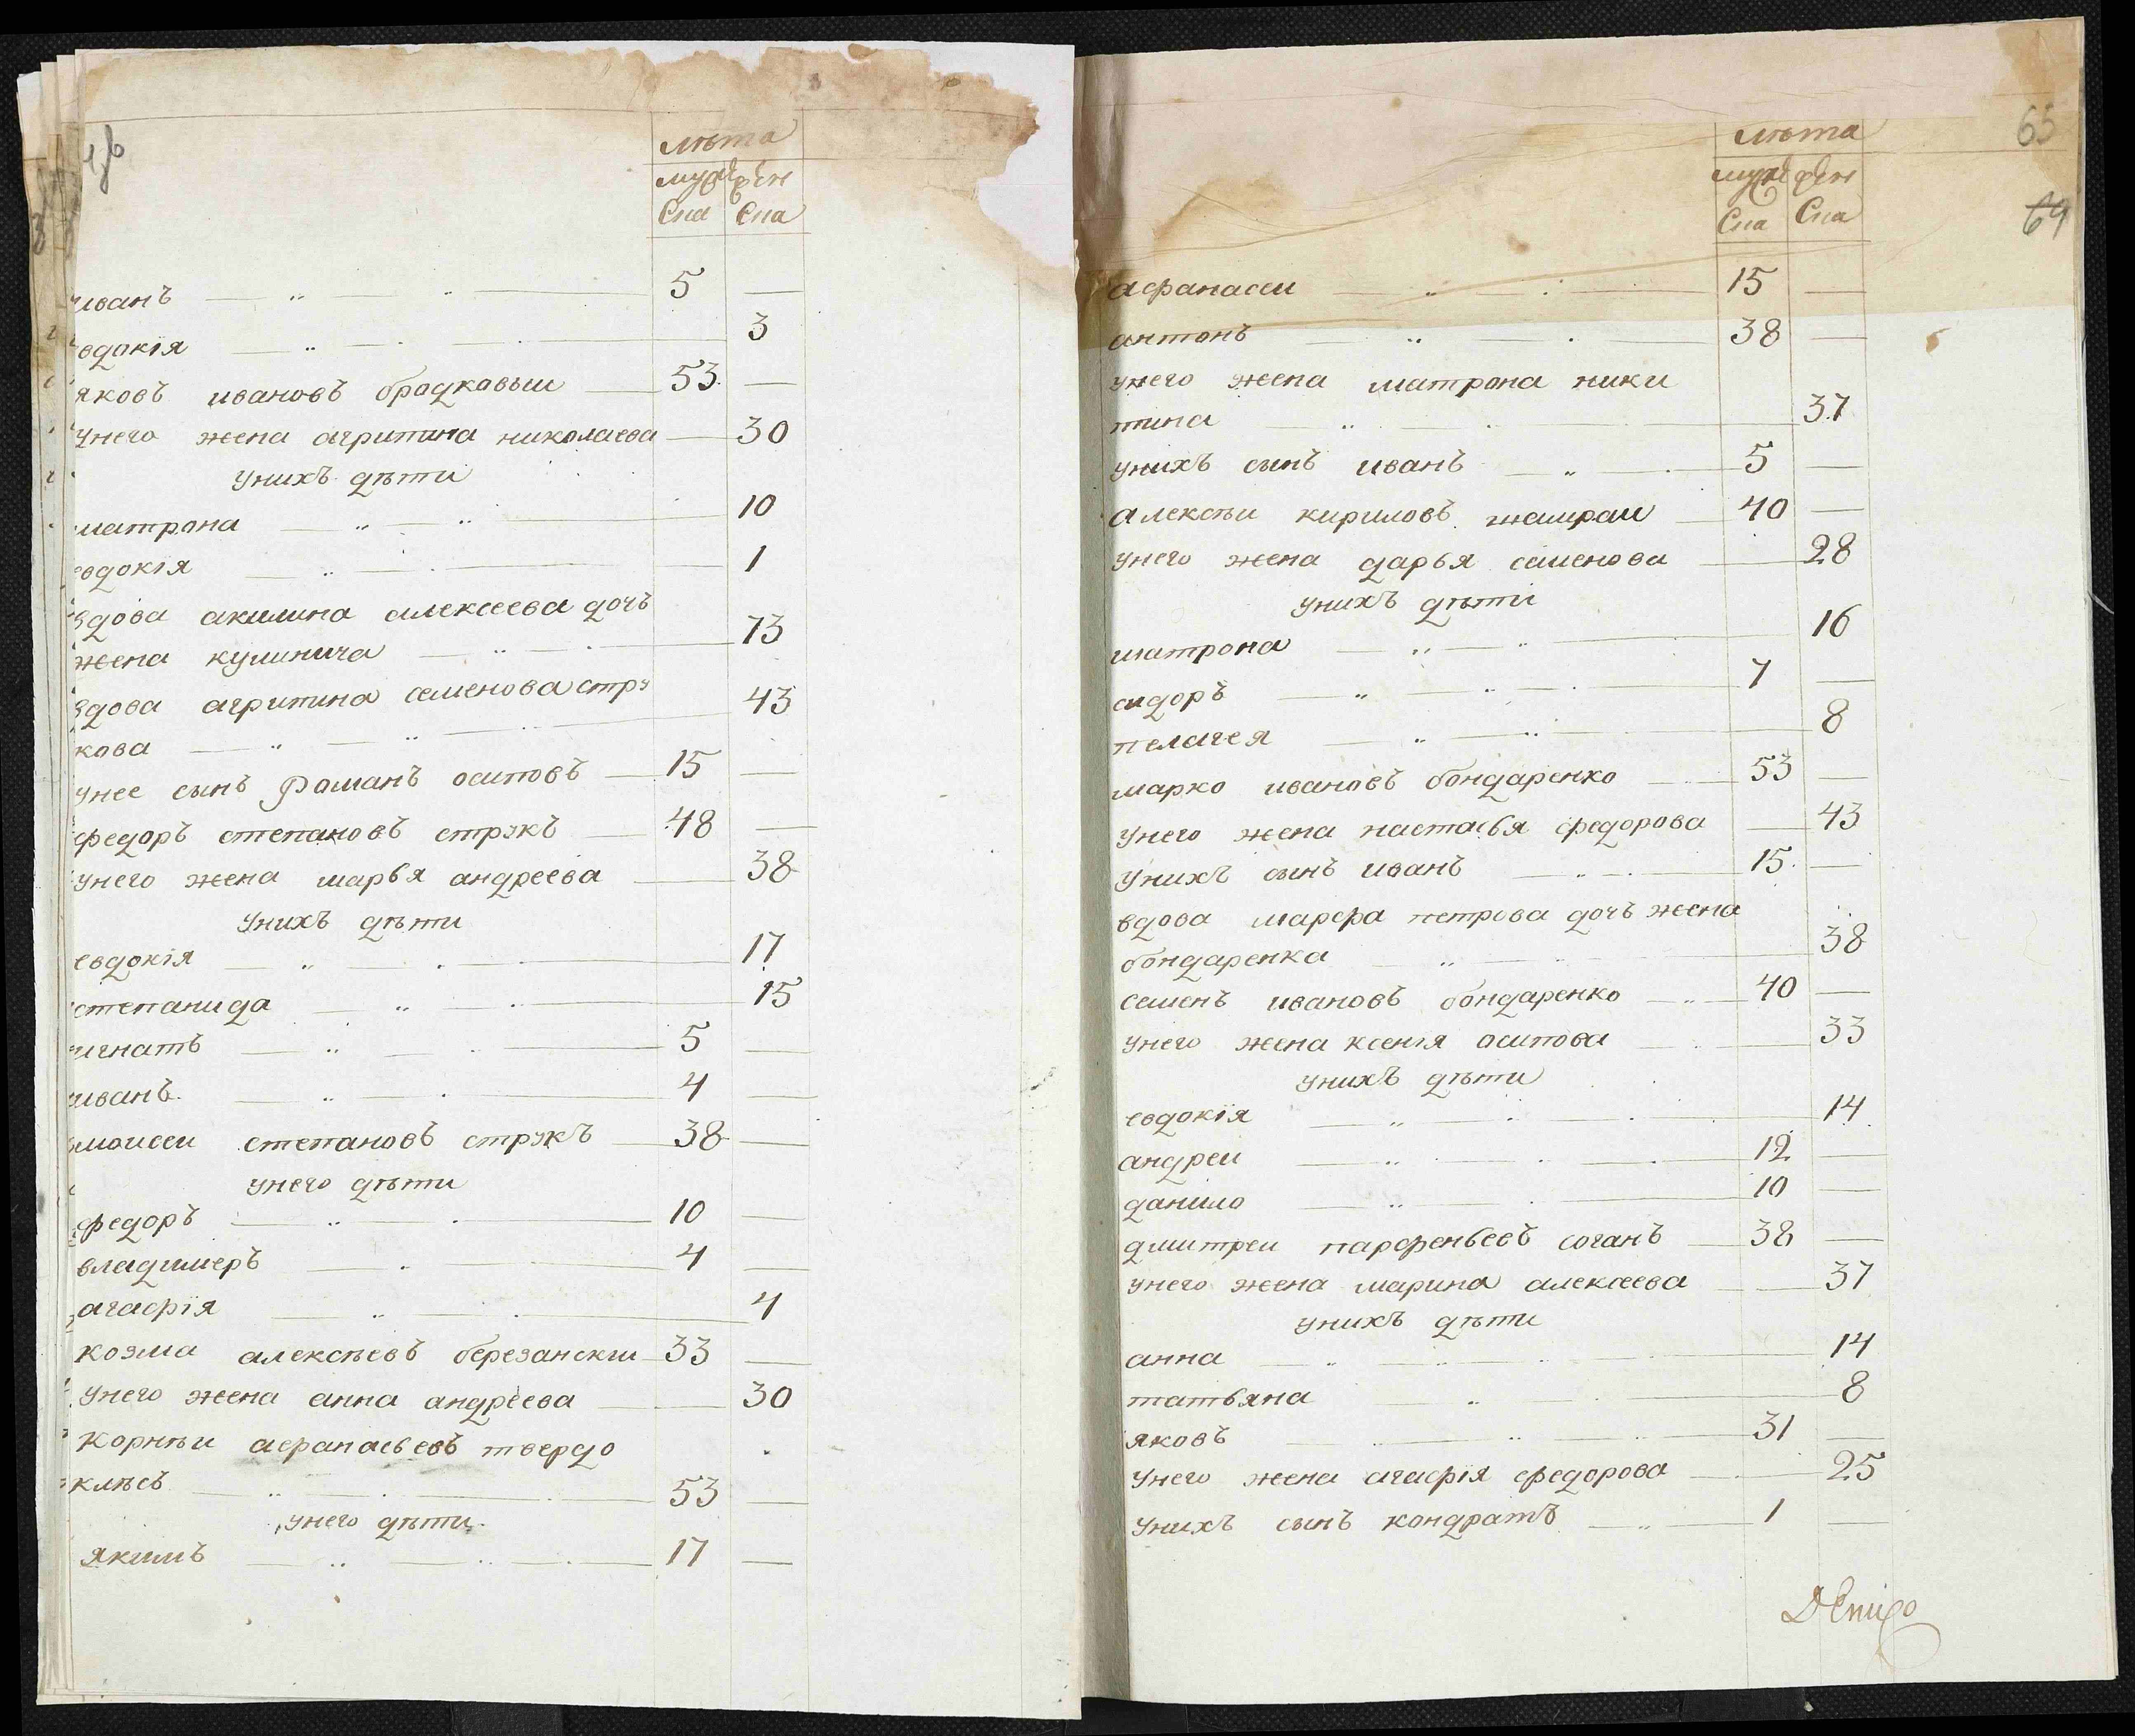 лѣта
муж жен
ска ска
иванъ 5 —
евдокія 3
яковъ ивановъ бродковыи 53 —
унего жена агрипина николаева 30
унихъ дѣти
матрона 10
евдокія 1
вдова акилина алексеева дочъ
жена кулинича 73
вдова агрипина семенова стру
кова 43
унее сынъ романъ осиповъ 15 —
федоръ степановъ струкъ 48 —
унего жена марья андреева 38
унихъ дѣти
евдокія 17
степанида 15
игнатъ 5 —
иванъ 4 —
моисеи степановъ струкъ 38 —
унего дѣти
федоръ 10 —
владимеръ 4 —
агафія 4
козма алексѣевъ березанскии 33 —
унего жена анна андрѣева 30
корнѣи афанасьевъ твердо
клѣсъ 53 —
унего дѣти
якимъ 17 —
65
69
лѣта
муже жен
ска ска
афанасеи 15 —
антонъ 38 —
унего жена матрона ники
тина 37
унихъ сынъ иванъ 5 —
алексѣи кириловъ 40 —
унего жена дарья семенова 28
унихъ дѣти
матрона 16
сидоръ 7 —
пелагея 8
марко ивановъ бондаренко 53 —
унего жена настасья федорова 43
унихъ сынъ иванъ 15 —
вдова марфа петрова дочъ жена
бондаренка 38
семенъ ивановъ бондаренко 40 —
унего жена ксенія осипова 33
унихъ дѣти
евдокія 14
андреи 12 —
данило 10 —
дмитреи парфеньевъ соганъ 38 —
унего жена марина алексеева 37
унихъ дѣти
анна 14
татьяна 8
яковъ 31 —
унего жена агафія федорова 25
унихъ сынъ кондратъ 1 —